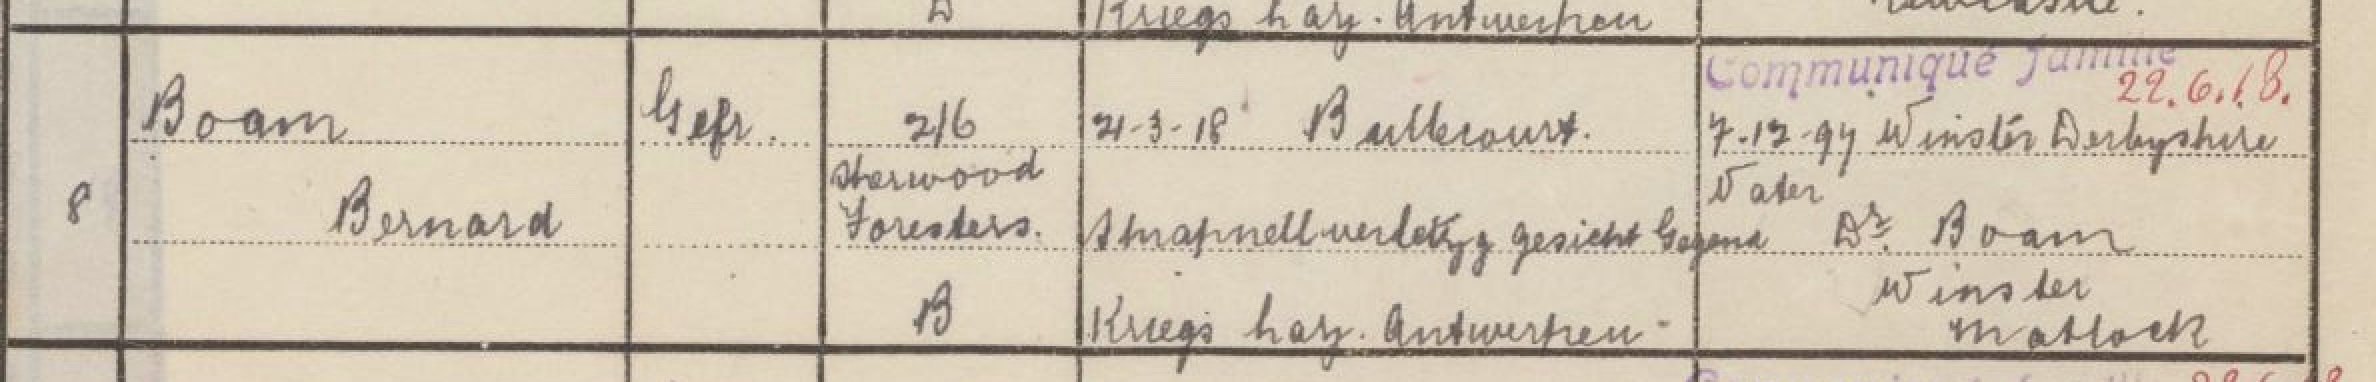 D Kriegs haz. Antwerpen Newcastle.
Communiqué famille
22.6.18.
Boam Gefr. 2/6 21-3-18 Bullecourt. 7-12-97 Winster Derbyshire
Sherwood Vater
8 Bernard Foresters. Shrapnellverletzg gesicht Gegend Dr. Boam
Winster
B Kriegs haz. Antwerpen - Matlock